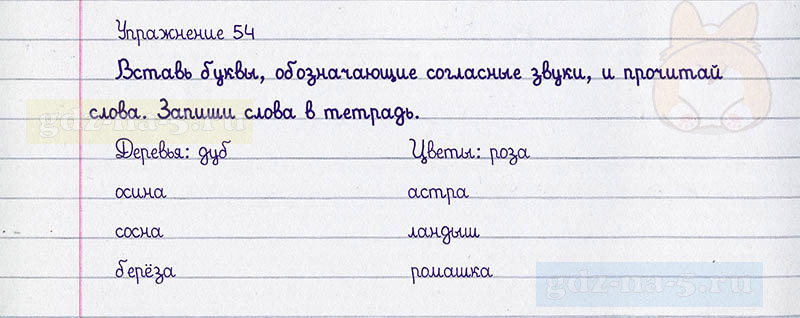 Упражнение 54
Вставь буквы, обозначающие согласные звуки, и прочитай
слова. Запиши слова в тетрадь.
gdz-na-5.ru
Деревья: дуб Цветы: роза
осина астра
сосна ландыш
берёза ромашка
gdz-na-5.ru